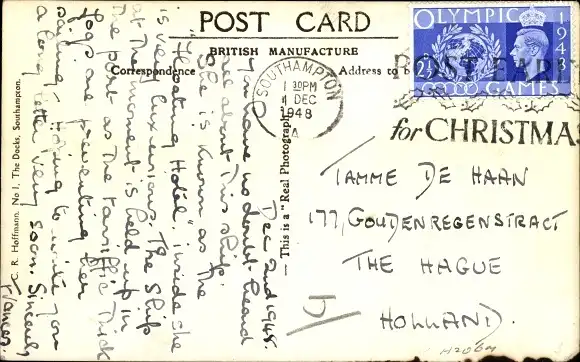 POST CARD
BRITISH MANUFACTURE
Correspondence
Address to b
OLYMPIC
1948
2½D
GAMES
SOUTHAMPTON
1 30PM
1 DEC
1948
A
POST EARL
for CHRISTMA
Dec 2nd 1948.
You have no doubt heard
all about this ship.
She is known as the
"Floating Hotel", inside she
is very luxurious. The ship
at the moment is held up in
the port as the terriffic thick
fogs are preventing her
sailing. Hoping to write you
a long letter very soon. Sincerely
This is a "Real Photograph"
C. R. Hoffmann. No 1, The Docks, Southampton.
TAMME DE HAAN
177, GOUDENREGENSTRACT
THE HAGUE
HOLLAND.